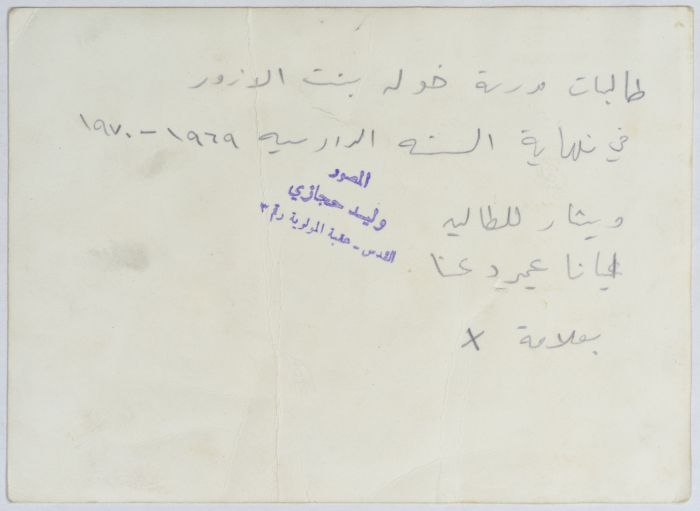 طالبات مدرسة خوله بنت الازور
في نهاية السنه الدارسيه ١٩٦٩-١٩٧٠
المصور
وليد حجازي
القدس - عقبة المولوية رقم ٣
ويشار للطالبه
عنا
بعلامة X